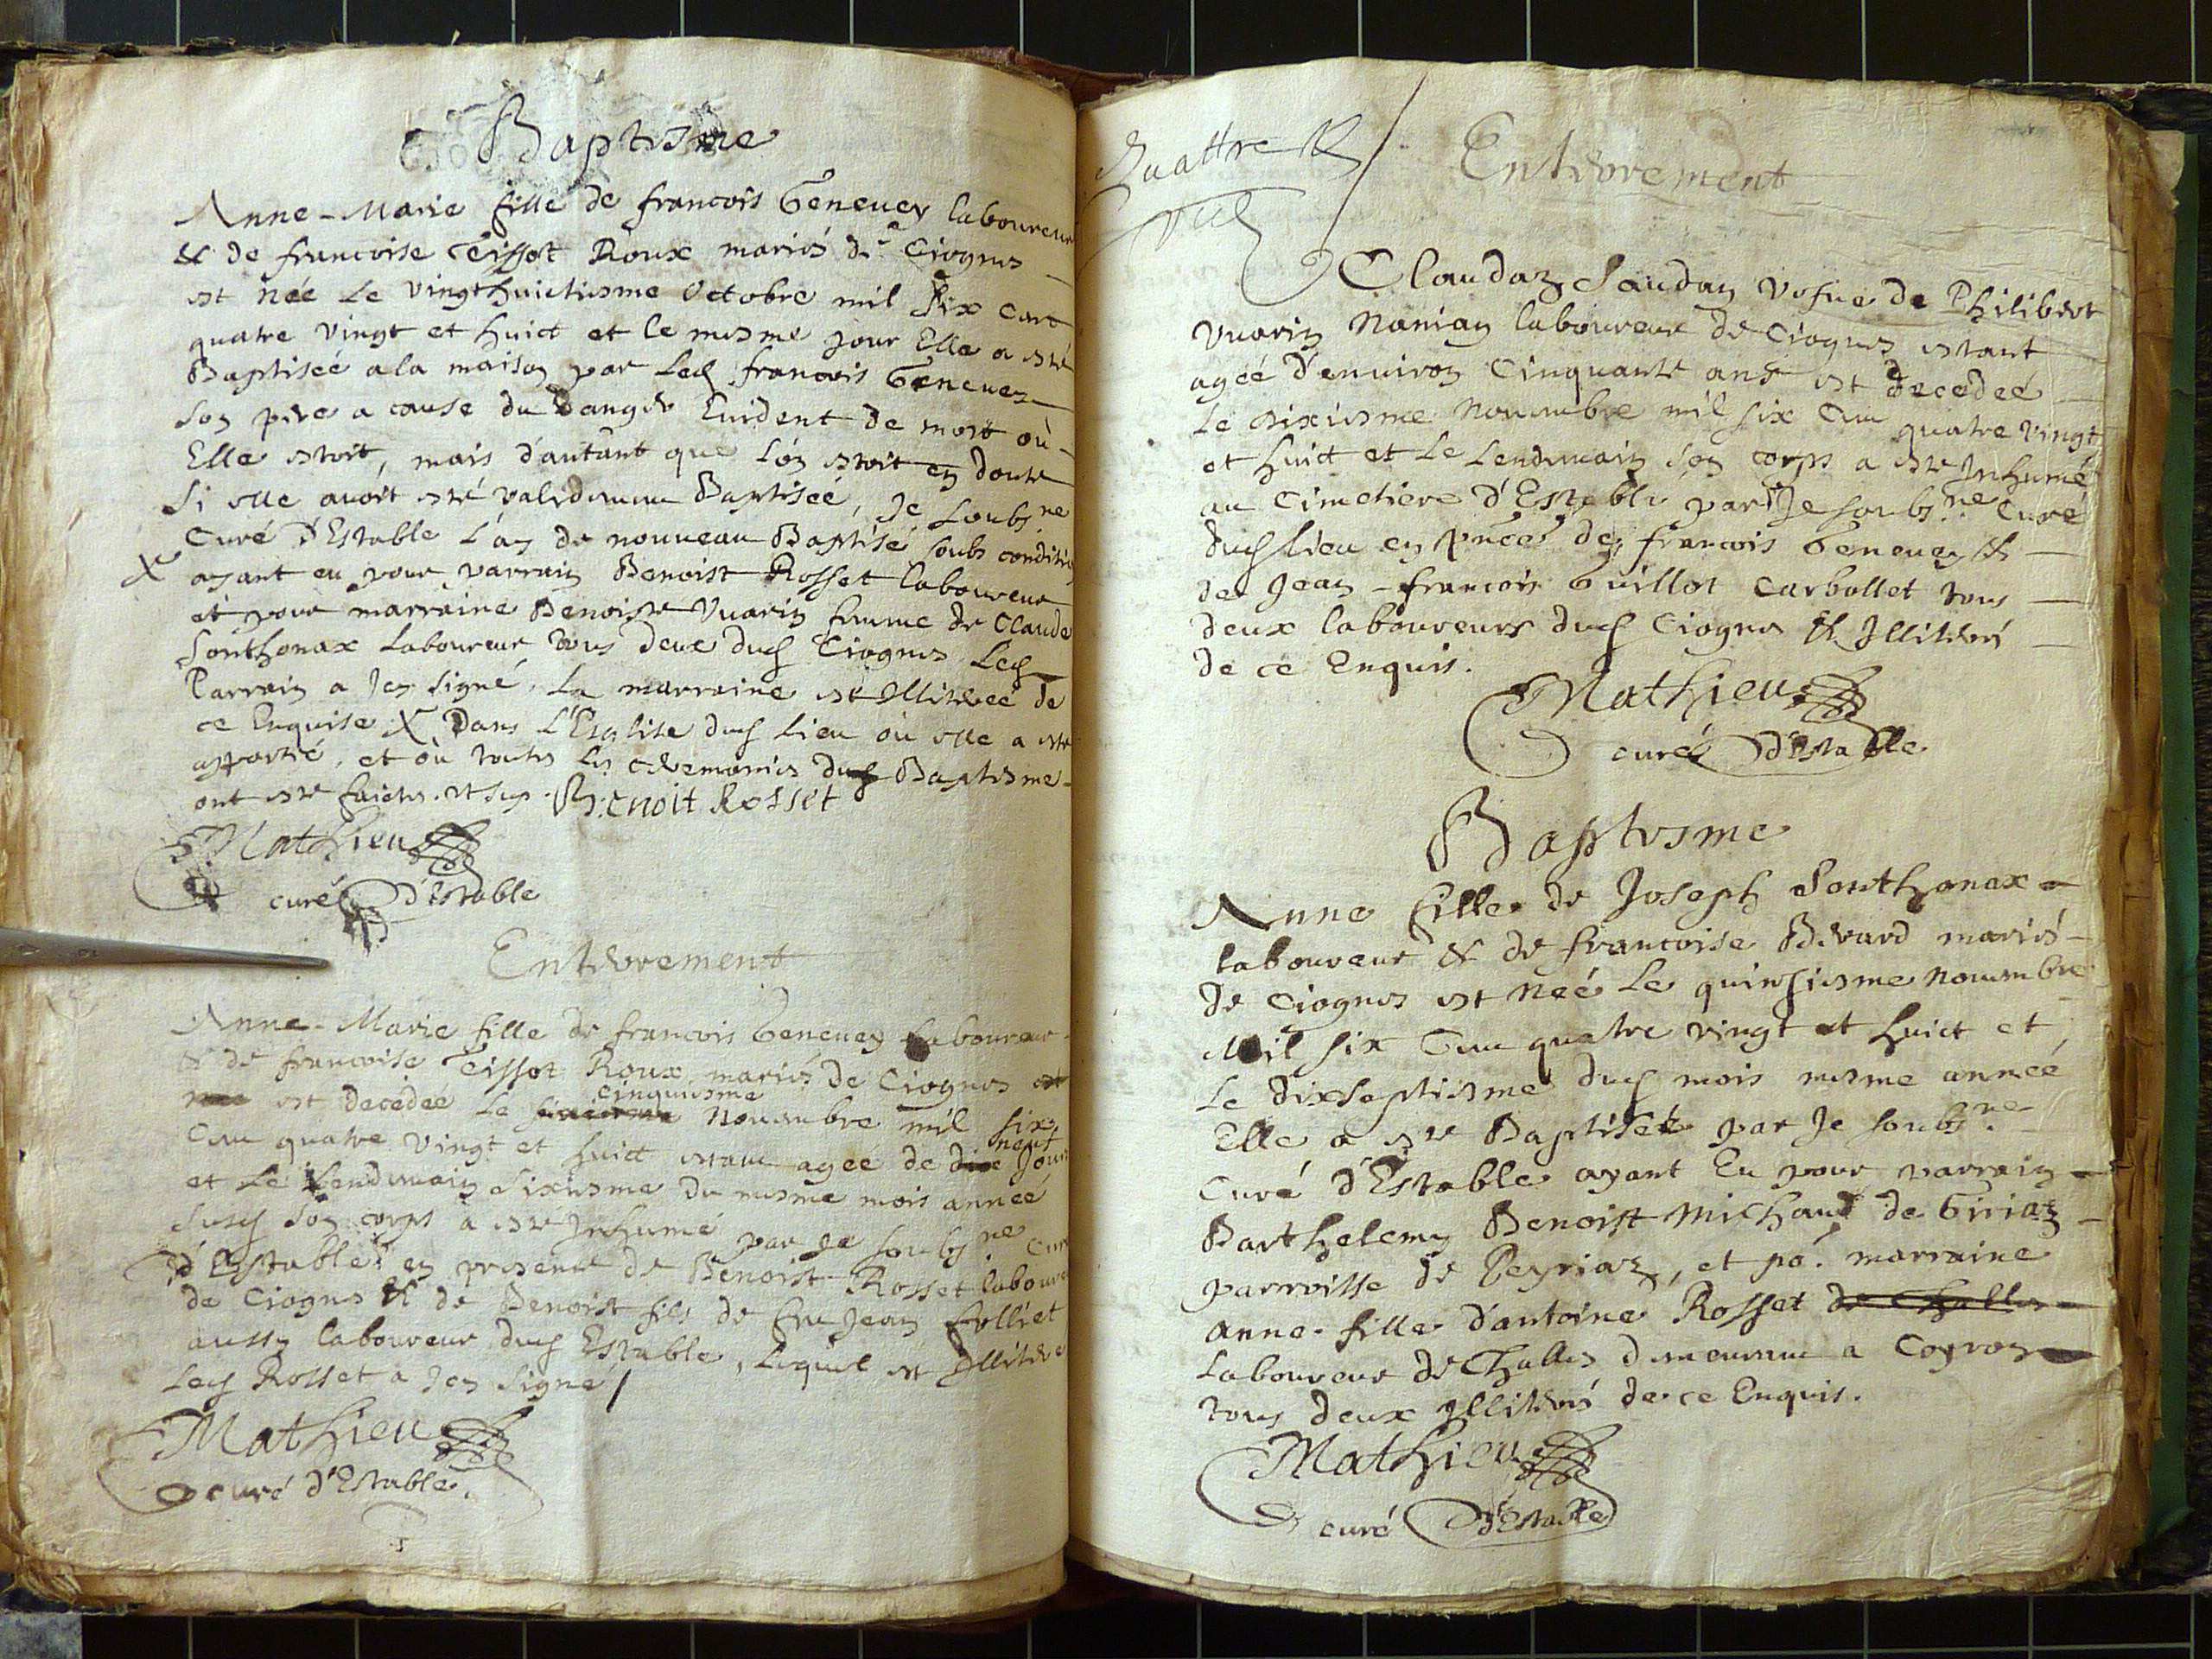 Baptesme
Anne-Marie fille de francois Geneuey laboureur
& de francoise Tissot Roux mariés de Ciognes
est née le vingthuictiesme Octobre mil six cent
quatre vingt et huict et le mesme jour Elle a esté
Baptiseé a la maison par led francois Geneuey
son pere a cause du danger Euident de mort où
Elle estoit, mais d'autant que l'on estoit en doute
si elle auoit esté validement Baptiseé, Je soubs.ne
Curé d'Estable l'ay de nouveau Baptisé soubs condition
X ayant eu pour parrain Benoist Rosset laboureur
et pour marraine Benoiste Vuarin femme de Claude
Sonthonax Laboureur tous deux dud Ciognes led
Parrain a Icy signé, la marraine est Illitereé de
ce Enquise X Dans l'Esglise dud lieu où elle a esté
apportée, et où toutes les ceremonies dud Baptesme
ont esté faictes. ut sup. Benoit Rosset
Mathieu
curé d'Estable
Enterrement
Anne-Marie fille de francois Geneuey laboureur
& de francoise Tissot Roux mariés de Ciognes est
née est decedeé le cinquiesme Nouembre mil six
cent quatre vingt et huict estant agee de dix neuf Jours
et le lendemain sixiesme du mesme mois anneé
susd son corps a esté Inhumé par Je soubs.ne Curé
d'Estable en presence de Benoist Rosset laboureur
de Ciognes & de Benoist fils de feu Jean folliet
aussy laboureur dud Estable, lequel est Illiteré
led Rosset a Icy signé /
Mathieu
curé d'Estable.
Quattre
Enterrement
Claudaz Saudan vefue de Philibert
Vuarin Nanian laboureur de Ciognes estant
ageé d'enuiron Cinquante ans est decedeé
le sixiesme Nouembre mil six cent quatre vingt
et huict et le lendemain son corps a esté Inhumé
au Cimetiere d'Estable par Je soubs.ne Curé
dud lieu en pnce de francois Geneuey &
de Jean-francois Guillot Carbollet tous
deux laboureurs dud Ciognes & Illiterés
de ce Enquis.
Mathieu
curé d'Estable
Baptesme
Anne fille de Joseph Sonthonax
laboureur & de francoise Berard mariés
de Ciognes est neé le quinsiesme nouembre
Mil six Cent quatre vingt et huict et
le dixseptiesme dud mois mesme anneé
Elle a esté Baptiseé par Je soubs.ne
Curé d'Estable ayant Eu pour parrain
Barthelemy Benoist Michaud de Giriaz
parroisse de Peyriaz, et po.r marraine
anne fille d'antoine Rosset de Challes
laboureur de Challes demeurant a Coyron
tous deux Illiterés de ce Enquis.
Mathieu
curé d'Estable